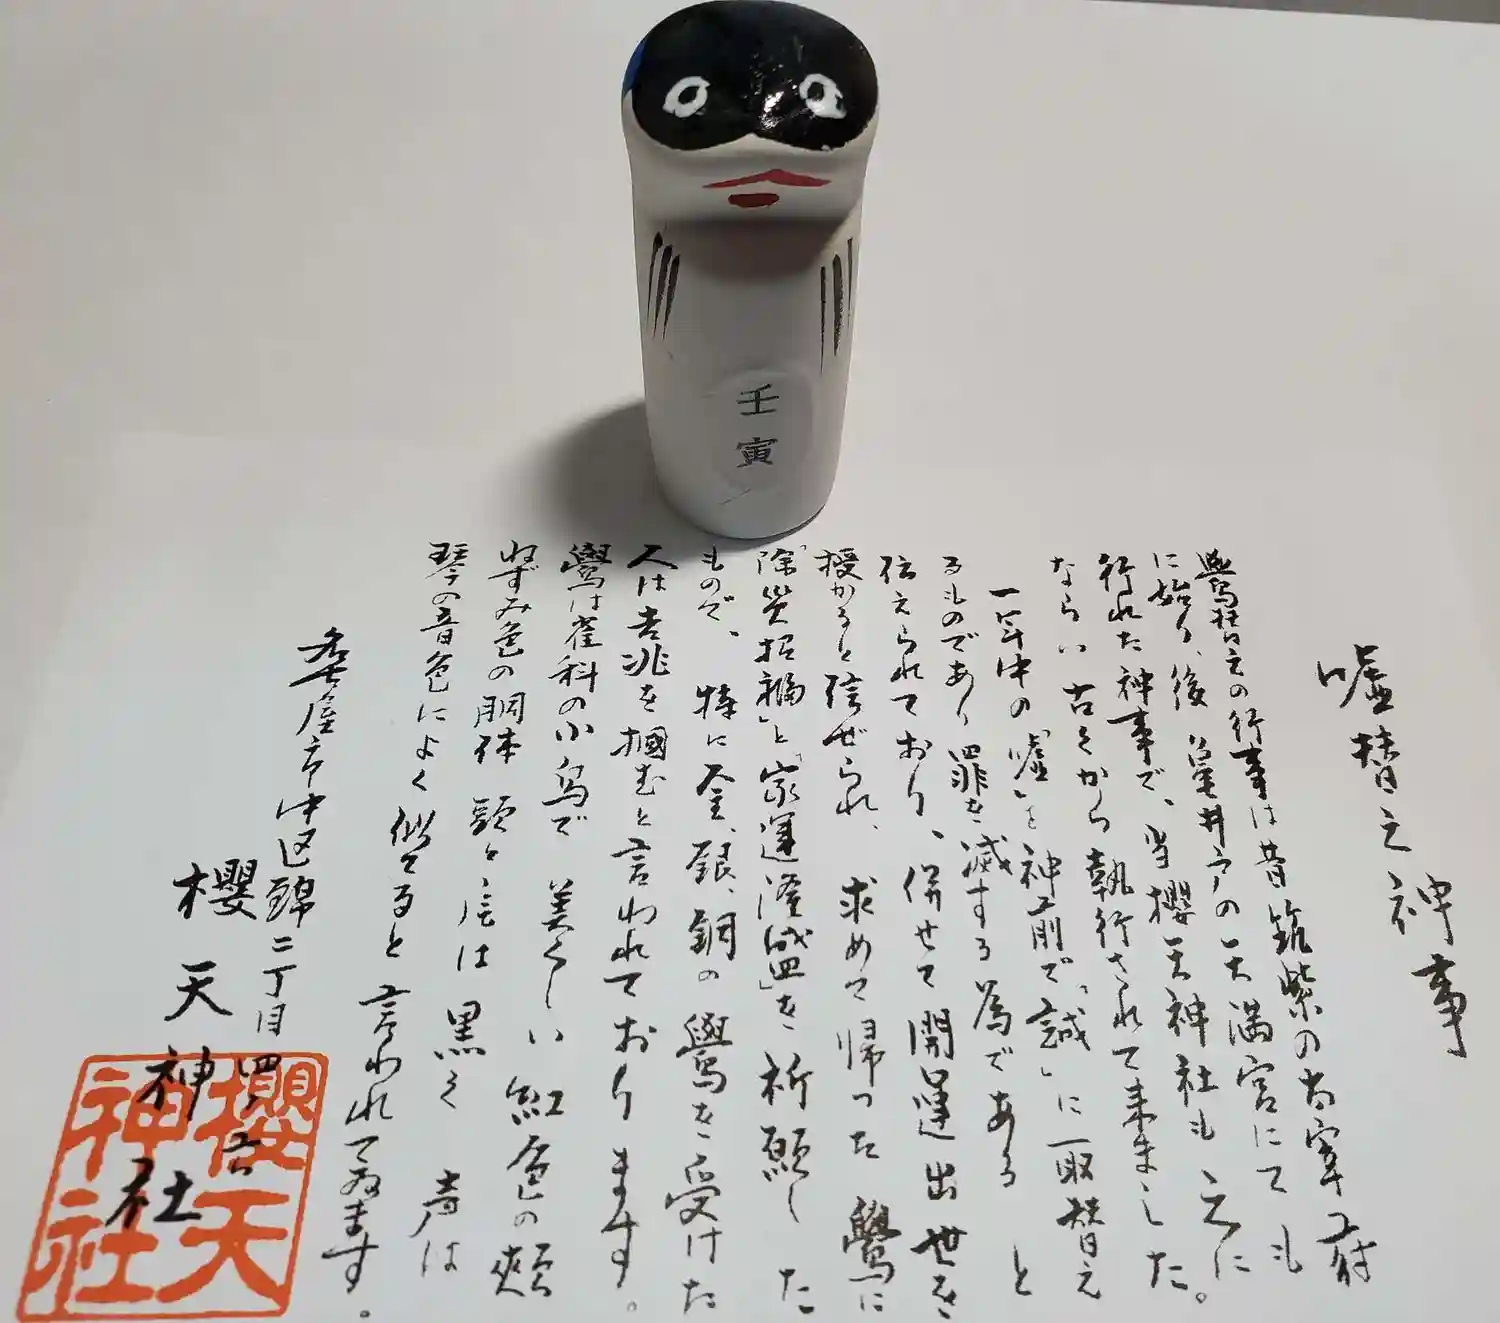 壬寅
嘘替之神事
鷽替之の行事は昔筑紫の太宰府
に始り、後亀井戸の天満宮にても
行れた神事で、当櫻天神社も之に
ならい古くから執行されて来ました。
一年中の「嘘」を神前で「誠」に取替え
るものであり罪を滅する為であると
伝えられており、併せて開運出世を
授かると信ぜられ、求めて帰った鷽に
「除災招福」と「家運隆盛」を祈願した
もので、特に金、銀、銅の鷽を受けた
人は吉兆を掴むと言われております。
鷽は雀科の小鳥で美くしい紅色の頬
ねずみ色の胴体頭と尾は黒く声は
琴の音色によく似てると言われてゐます。
名古屋市中区錦二丁目四ノ六
櫻天神社
櫻天
神社